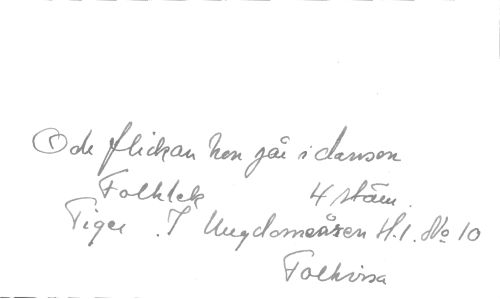 Och flickan hon går i dansen
Folklek 4 stäm.
Tiger. I Ungdomsåren H.1. No 10
Folkvisa